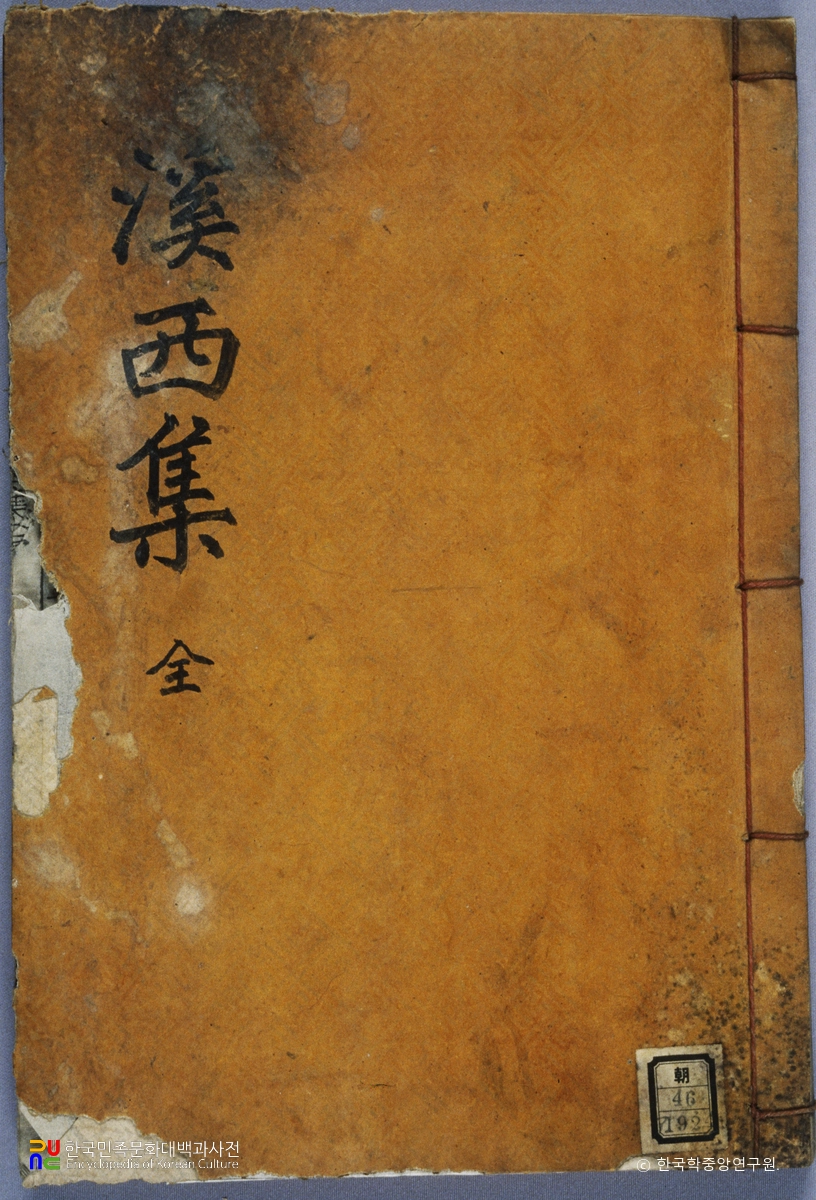 溪西集
全
朝
46
192
한국민족문화대백과사전
Encyclopedia of Korean Culture
© 한국학중앙연구원